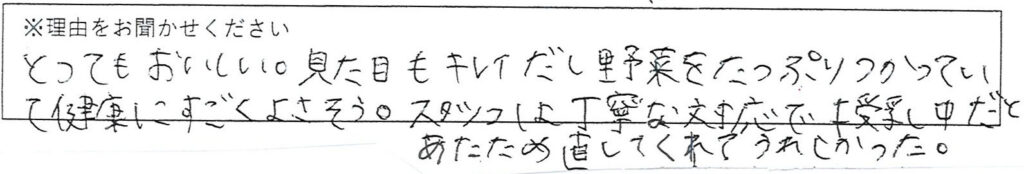 ※理由をお聞かせください
とってもおいしい。見た目もキレイだし野菜をたっぷりつかってい
て健康にすごくよさそう。スタッフは丁寧な対応で授乳中だと
あたため直してくれてうれしかった。